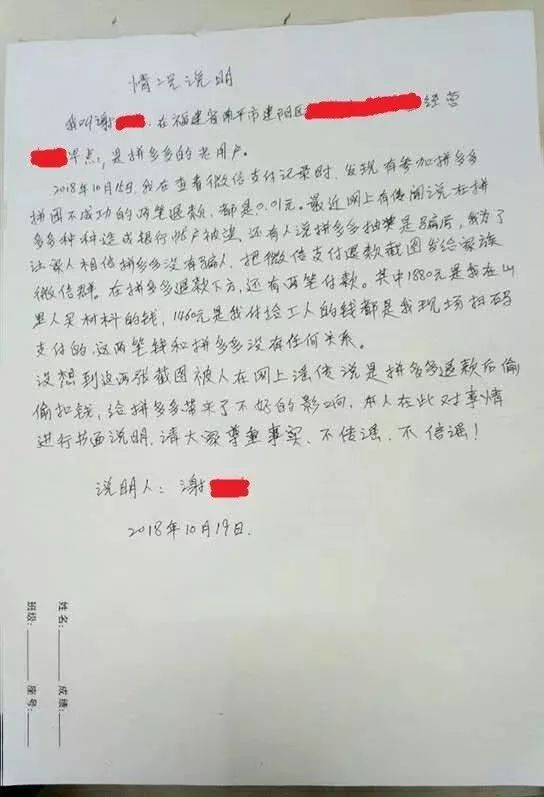 情况说明
我叫谢 在福建省南平市建阳区 经营
早点,是拼多多的老用户。
2018年10月15日,我在查看微信支付记录时,发现有参加拼多多
拼团不成功的两笔退款,都是0.01元。最近网上有传闻说在拼
多多种种造成银行帐户被盗,还有人说拼多多抽奖是骗局,我为了
让家人相信拼多多没有骗人,把微信支付退款截图发给家族
微信群。在拼多多退款下方,还有两笔付款。其中1880元是我在山
里人买材料的钱,1460元是我付给工人的钱都是我现场扫码
支付的,这两笔钱和拼多多没有任何关系。
没想到这两张截图被人在网上谣传说是拼多多退款后偷
偷扣钱,给拼多多带来了不好的影响,本人在此对事情
进行书面说明,请大家尊重事实、不传谣、不信谣!
说明人:谢
2018年10月19日.
姓名: 成绩:
班级: 座号: